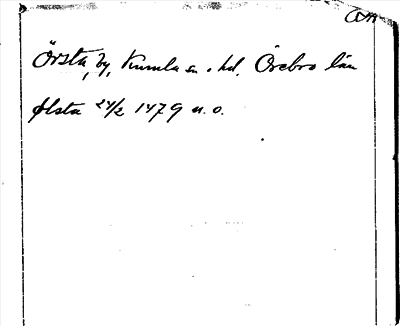 Örsta, by, Kumla sn o. hd. Örebro län
Ølsta 24/2 1479 u. o.